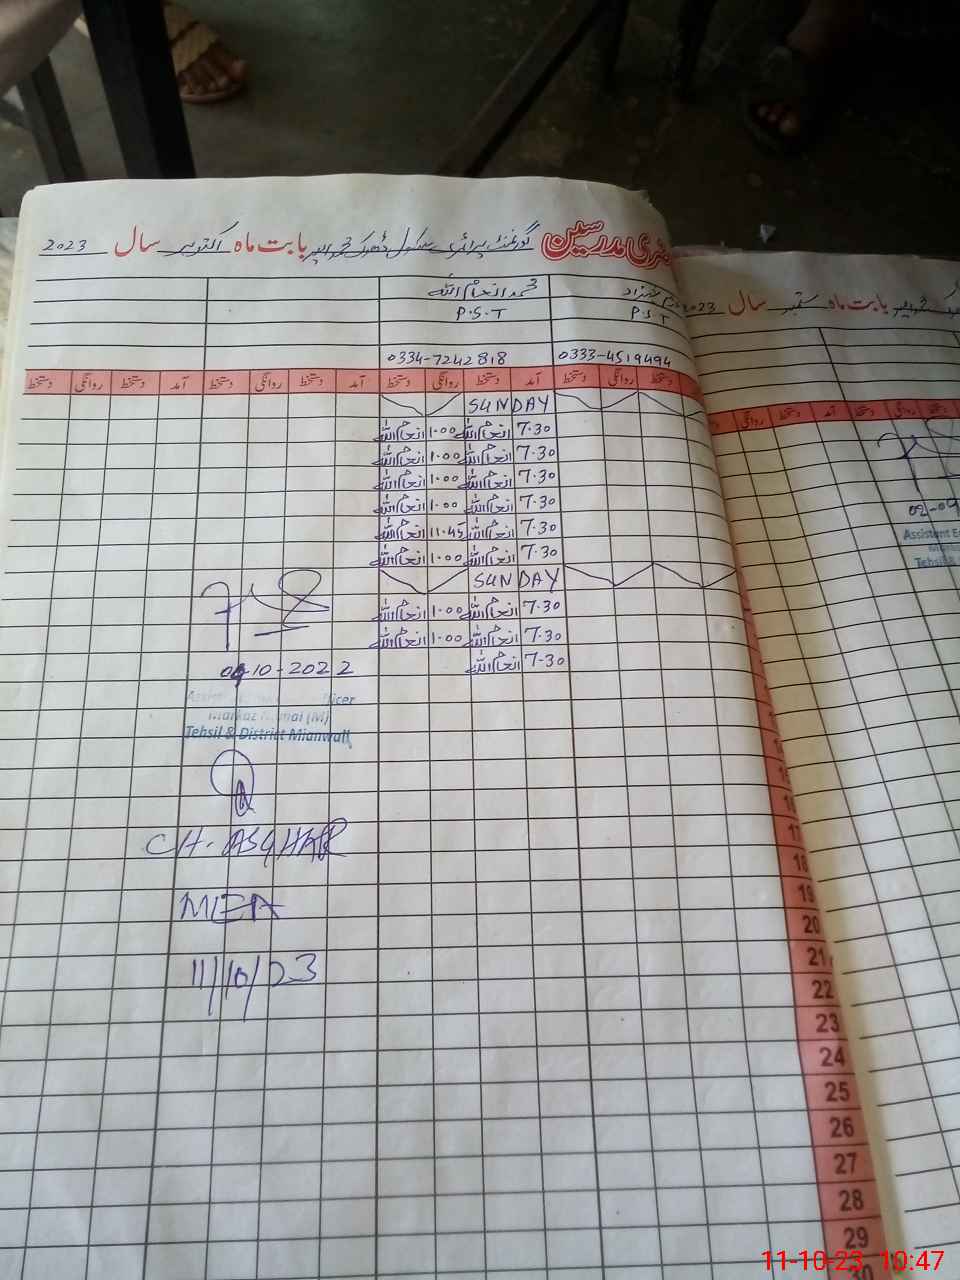 حاضری مدرسین گورنمنٹ پرائمری سکول ڈھوک بابت ماہ اکتوبر سال 2023
محمد انعام اللہ
P.S.T P.S.T
0333-4519494 0334-7242818
دستخط روانگی دستخط آمد دستخط روانگی دستخط آمد دستخط روانگی دستخط آمد دستخط روانگی دستخط
SUNDAY
7.30 انعام اللہ 1.00 انعام اللہ
7.30 انعام اللہ 1.00 انعام اللہ
7.30 انعام اللہ 1.00 انعام اللہ
7.30 انعام اللہ 1.00 انعام اللہ
7.30 انعام اللہ 11.45 انعام اللہ
7.30 انعام اللہ 1.00 انعام اللہ
SUNDAY
7.30 انعام اللہ 1.00 انعام اللہ
7.30 انعام اللہ 1.00 انعام اللہ
7.30 انعام اللہ
10-2022
Tehsil & District Mianwali
CH. ASGHAR
MEA
11/10/23
17
18
19
20
21
22
23
24
25
26
27
28
29
30
بابت ماہ ستمبر سال 2023
روانگی دستخط آمد دستخط روانگی دستخط
02-09
Assistant
Tehsil &
11-10-23 10:47